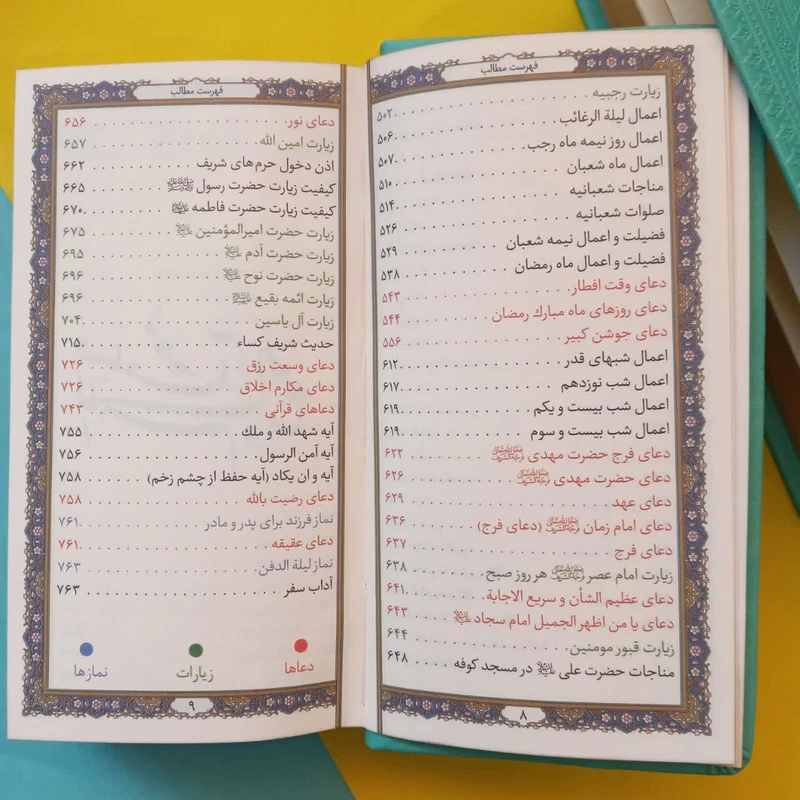 فهرست مطالب
زیارت رجبیه . . . . . ۵۰۲
اعمال لیلة الرغائب . . . . . ۵۰۶
اعمال روز نیمه ماه رجب . . . . . ۵۰۷
اعمال ماه شعبان . . . . . ۵۱۰
مناجات شعبانیه . . . . . ۵۱۴
صلوات شعبانیه . . . . . ۵۲۶
فضیلت و اعمال نیمه شعبان . . . . . ۵۲۹
فضیلت و اعمال ماه رمضان . . . . . ۵۳۸
دعای وقت افطار . . . . . ۵۴۳
دعای روزهای ماه مبارك رمضان . . . . . ۵۴۴
دعای جوشن کبیر . . . . . ۵۵۶
اعمال شبهای قدر . . . . . ۶۱۲
اعمال شب نوزدهم . . . . . ۶۱۷
اعمال شب بیست و یکم . . . . . ۶۱۹
اعمال شب بیست و سوم . . . . . ۶۱۹
دعای فرج حضرت مهدی . . . . . ۶۲۲
دعای حضرت مهدی . . . . . ۶۲۶
دعای عهد . . . . . ۶۲۹
دعای امام زمان (دعای فرج) . . . . . ۶۳۶
دعای فرج . . . . . ۶۳۷
زیارت امام عصر هر روز صبح . . . . . ۶۳۸
دعای عظیم الشأن و سریع الاجابة . . . . . ۶۴۱
دعای یا من اظهر الجمیل امام سجاد . . . . . ۶۴۳
زیارت قبور مومنین . . . . . ۶۴۴
مناجات حضرت علی در مسجد کوفه . . . . . ۶۴۸
۸
فهرست مطالب
دعای نور . . . . . ۶۵۶
زیارت امین الله . . . . . ۶۵۷
اذن دخول حرم‌های شریف . . . . . ۶۶۲
کیفیت زیارت حضرت رسول . . . . . ۶۶۵
کیفیت زیارت حضرت فاطمه . . . . . ۶۷۰
زیارت حضرت امیرالمؤمنین . . . . . ۶۷۵
زیارت حضرت آدم . . . . . ۶۹۵
زیارت حضرت نوح . . . . . ۶۹۶
زیارت ائمه بقیع . . . . . ۶۹۶
زیارت آل یاسین . . . . . ۷۰۴
حدیث شریف کساء . . . . . ۷۱۵
دعای وسعت رزق . . . . . ۷۲۶
دعای مکارم اخلاق . . . . . ۷۲۶
دعاهای قرآنی . . . . . ۷۴۳
آیه شهد الله و ملك . . . . . ۷۵۵
آیه آمن الرسول . . . . . ۷۵۶
آیه و ان یکاد (آیه حفظ از چشم زخم) . . . . . ۷۵۸
دعای رضیت بالله . . . . . ۷۵۸
نماز فرزند برای پدر و مادر . . . . . ۷۶۱
دعای عقیقه . . . . . ۷۶۱
نماز لیلة الدفن . . . . . ۷۶۳
آداب سفر . . . . . ۷۶۳
دعاها زیارات نمازها
۹